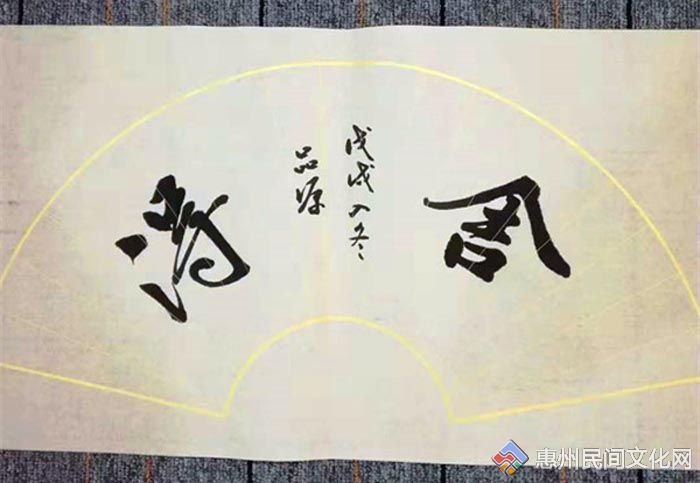 周
戊戌入冬
品源
惠州民间文化网